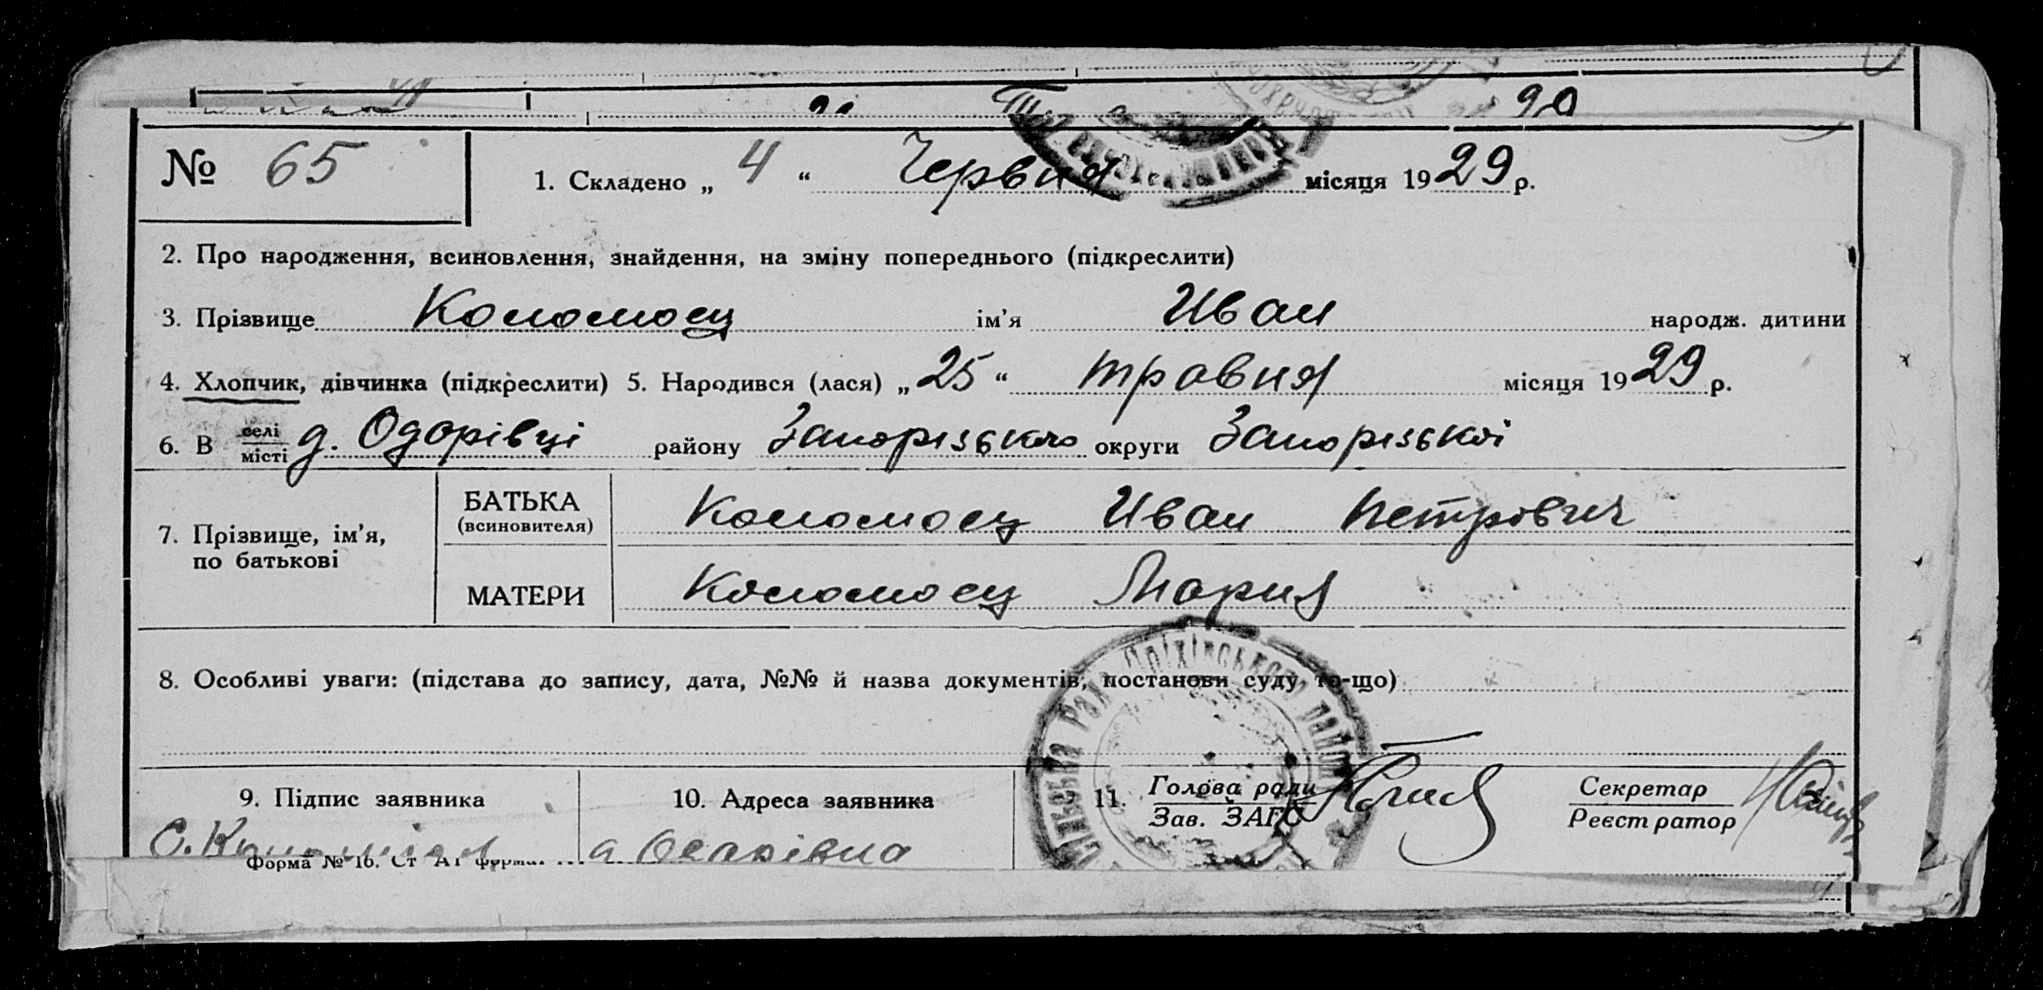 90
№ 65 1. Складено „ 4 “ Червня місяця 1929 р.
2. Про народження, всиновлення, знайдення, на зміну попереднього (підкреслити)
3. Прізвище Коломоец ім’я Иван народж. дитини
4. Хлопчик, дівчинка (підкреслити) 5. Народився (лася) „ 25 “ травня місяця 1929 р.
6. В селі місті д. Одарівці району Запорізького округи Запорізької
7. Прізвище, ім’я, по батькові
БАТЬКА (всиновителя) Коломоец Иван Петрович
МАТЕРИ Коломоец Мария
8. Особливі уваги: (підстава до запису, дата, №№ й назва документів, постанови суду то-що)
Рада Оріхівського району
9. Підпис заявника 10. Адреса заявника 11. Голова ради Секретар
Зав. ЗАГС Реєстратор
Форма № 16.